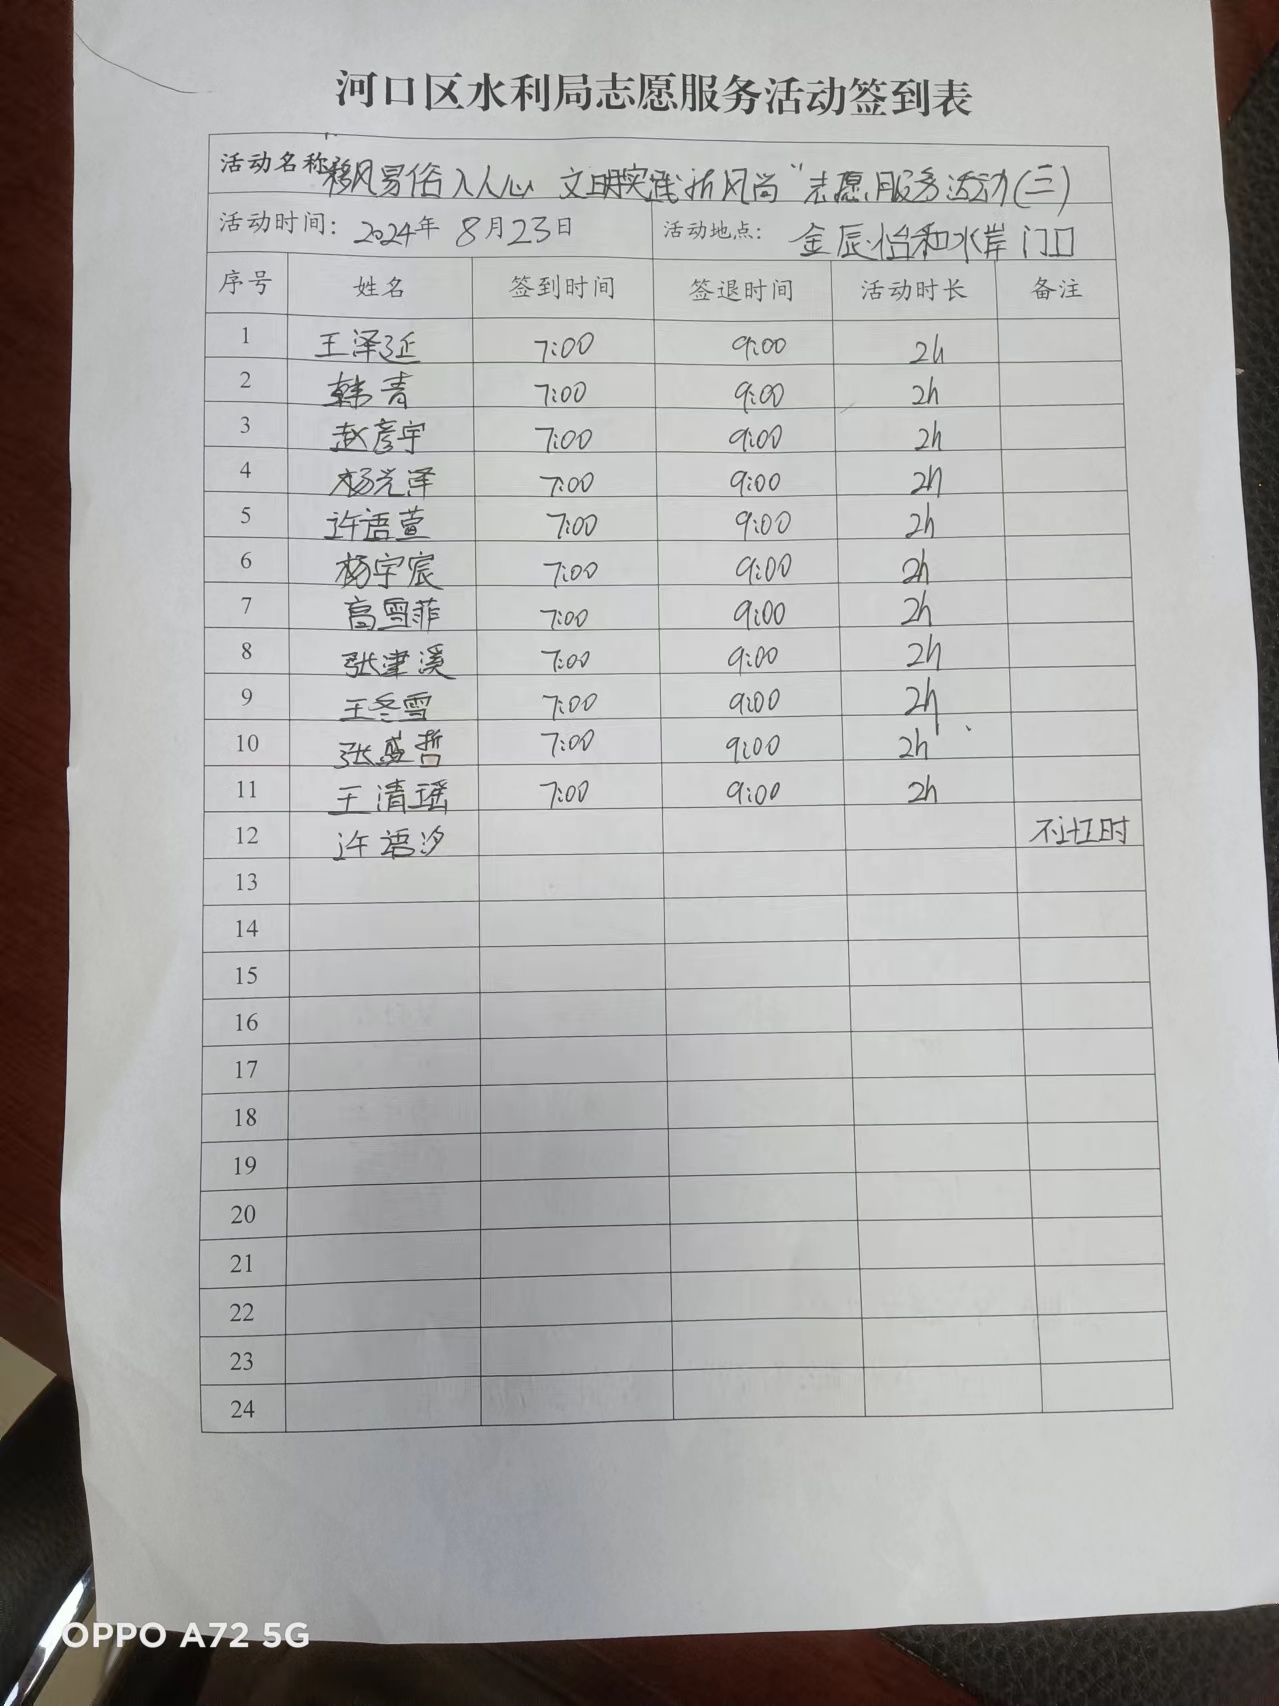 河口区水利局志愿服务活动签到表
活动名称:"移风易俗入人心 文明实践新风尚"志愿服务活动(三)
活动时间: 2024年 8月23日 活动地点: 金辰·怡和水岸门口
序号 姓名 签到时间 签退时间 活动时长 备注
1 王泽延 7:00 9:00 2h
2 韩青 7:00 9:00 2h
3 赵彦宇 7:00 9:00 2h
4 杨光泽 7:00 9:00 2h
5 许语萱 7:00 9:00 2h
6 杨宇宸 7:00 9:00 2h
7 高雪菲 7:00 9:00 2h
8 张津溪 7:00 9:00 2h
9 王冬雪 7:00 9:00 2h
10 张盛哲 7:00 9:00 2h
11 王清瑶 7:00 9:00 2h
12 许语汐 不计工时
13
14
15
16
17
18
19
20
21
22
23
24
OPPO A72 5G